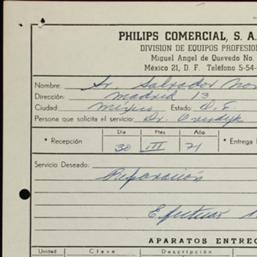 PHILIPS COMERCIAL, S. A.
DIVISION DE EQUIPOS PROFESIO
Miguel Angel de Quevedo No.
México 21, D. F. Teléfono 5-54-
Nombre: Sr. Salvador
Dirección: Madrid 13
Ciudad: México Estado: D. F.
Persona que solicita el servicio: Sr.
Día Mes Año
* Recepción 30 III 71 * Entrega
Servicio Deseado:
Reparación
Efectuar
APARATOS ENTREG
Unidad Clave Descripción